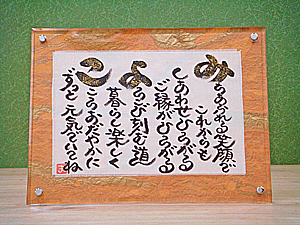 みちあふれる笑顔で
これからも
ご縁がひろがる
しあわせひろがる
よろこび刻む道
暮らし楽しく
こころおだやかに
ずっと元気でいてね